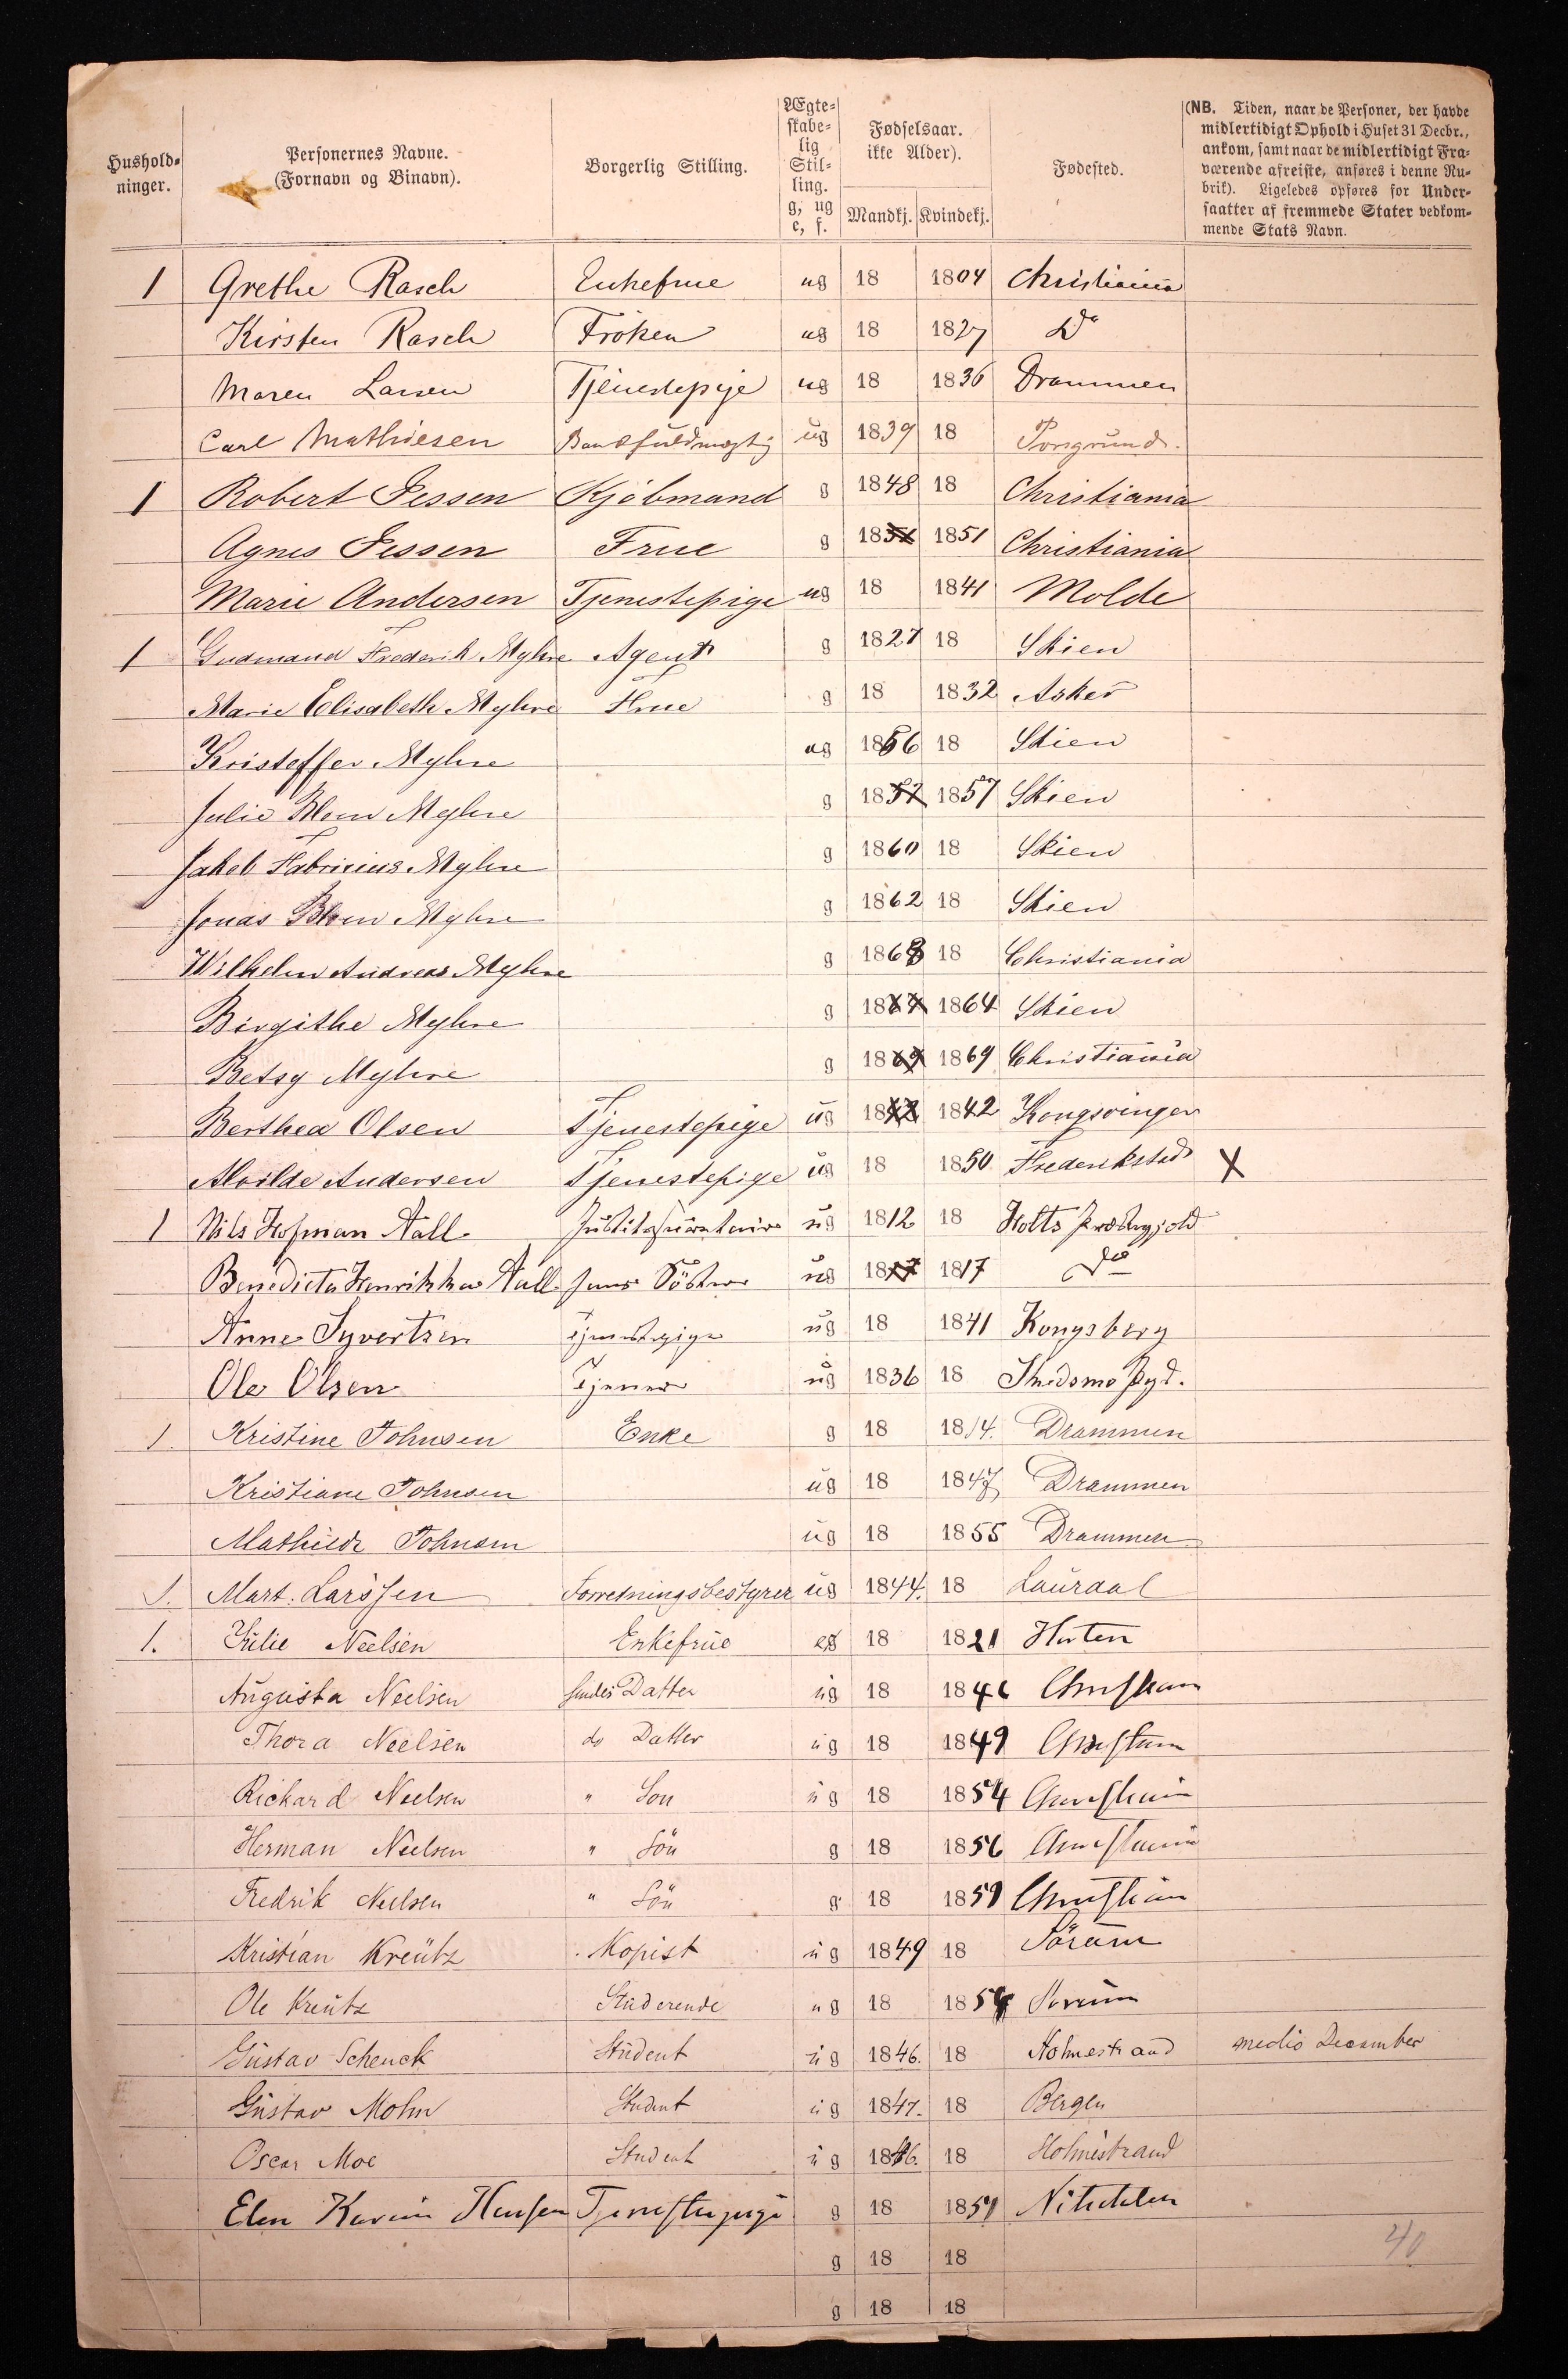 Hushold-
ninger.
Personernes Navne.
(Fornavn og Binavn).
Borgerlig Stilling.
Ægte-
skabe-
lig
Stil-
ling.
g, ug
e, f.
Fødselsaar.
ikke Alder).
Mandkj. Kvindekj.
Fødested.
(NB. Tiden, naar de Personer, der havde
midlertidigt Ophold i Huset 31 Decbr.,
ankom, samt naar de midlertidigt Fra-
værende afreiste, anføres i denne Ru-
brik). Ligeledes opføres for Under-
saatter af fremmede Stater vedkom-
mende Stats Navn.
1 Grethe Rasch Enkefrue ug 18 1804 Christiania
Kirsten Rasch Fröken ug 18 1827 Do
Maren Larsen Tjenestepige ug 18 1836 Drammen
Carl Mathiesen Bankfuldmægtig ug 1839 18 Porsgrund.
1 Robert Jessen Kjöbmand g 1848 18 Christiania
Agnes Jessen Frue g 1851 1851 Christiania
Marie Andersen Tjenestepige ug 18 1841 Molde
1 Gudmand Frederik Myhre Agent g 1827 18 Skien
Marie Elisabeth Myhre Frue g 18 1832 Asker
Kristoffer Myhre ug 1856 18 Skien
Julie Blom Myhre g 1857 1857 Skien
Jakob Fabricius Myhre g 1860 18 Skien
Jonas Blom Myhre g 1862 18 Skien
Wilhelm Andreas Myhre g 1868 18 Christiania
Birgithe Myhre g 18 1864 Skien
Betsy Myhre g 1869 1869 Christiania
Berthea Olsen Tjenestepige ug 1842 1842 Kongsvinger
Alvilde Andersen Tjenestepige ug 18 1850 Frederikstad X
1 Nils Hofman Aall ug 1812 18 Holts Præstegjeld
Benedicte Henrikka Aall hans Söster ug 1817 1817 do
Anne Syvertsen Tjenestepige ug 18 1841 Kongsberg
Ole Olsen Tjener ug 1836 18 Skedsmo Pgd.
1. Kristine Johnsen Enke g 18 1814. Drammen
Kristiane Johnsen ug 18 1847 Drammen
Mathilde Johnsen ug 18 1855 Drammen
1. Mart. Larssen Forretningsbestyrer ug 1844. 18 Laurdal
1. Julie Neelsen Enkefrue eg 18 1821 Horten
Augusta Neelsen hendes Datter ug 18 1846 Christiania
Thora Neelsen do Datter ug 18 1849 Christiania
Rickard Neelsen " Sön ug 18 1854 Christiania
Herman Neelsen " Sön g 18 1856 Christiania
Fredrik Neelsen " Sön g 18 1859 Christiania
Kristian Kreütz Kopist ug 1849 18 Söram
Ole Kreütz Studerende ug 18 185 Sörum
Gustav Schenck Student ug 1846. 18 Holmestrand medio December
Gustav Mohn Student ug 1847. 18 Bergen
Oscar Moe Student ug 1846. 18 Holmestrand
Elen Karine Hansen Tjenestepige g 18 185 Nitedalen
g 18 18 40
g 18 18